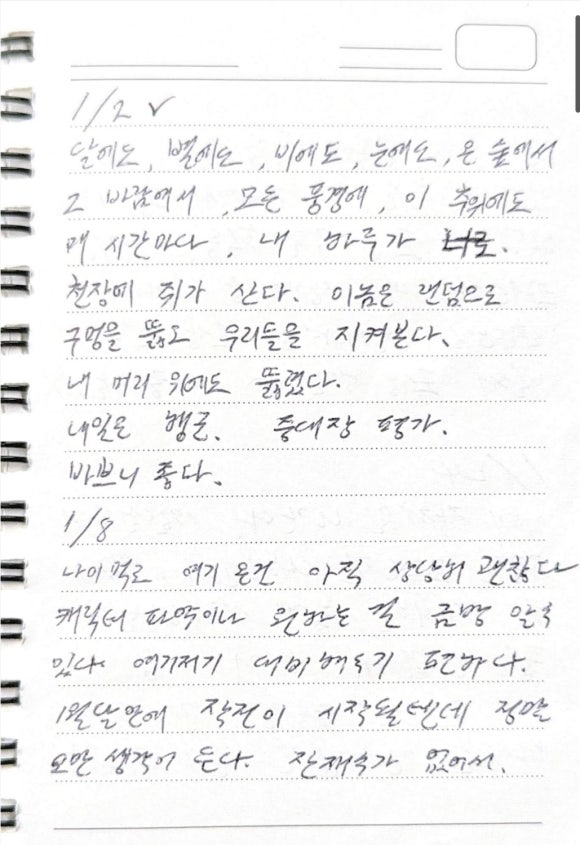 1/2 v
달에도, 별에도, 비에도, 눈에도, 온 숲에서
그 바람에서, 모든 풍경에, 이 추위에도
매 시간마다, 내 하루가 너로.
천장에 쥐가 산다. 이놈은 랜덤으로
구멍을 뚫고 우리들을 지켜본다.
내 머리 위에도 뚫렸다.
내일은 행군. 중대장 평가.
바쁘니 좋다.
1/8
나이먹고 여기 온건 아직 상당히 괜찮다
캐릭터 파악이나 원하는 걸 금방 알 수
있다. 여기저기 대비해두기 편하다.
1월달 안에 작전이 시작될텐데 정말
오만 생각이 든다. 잔재주가 없어서.